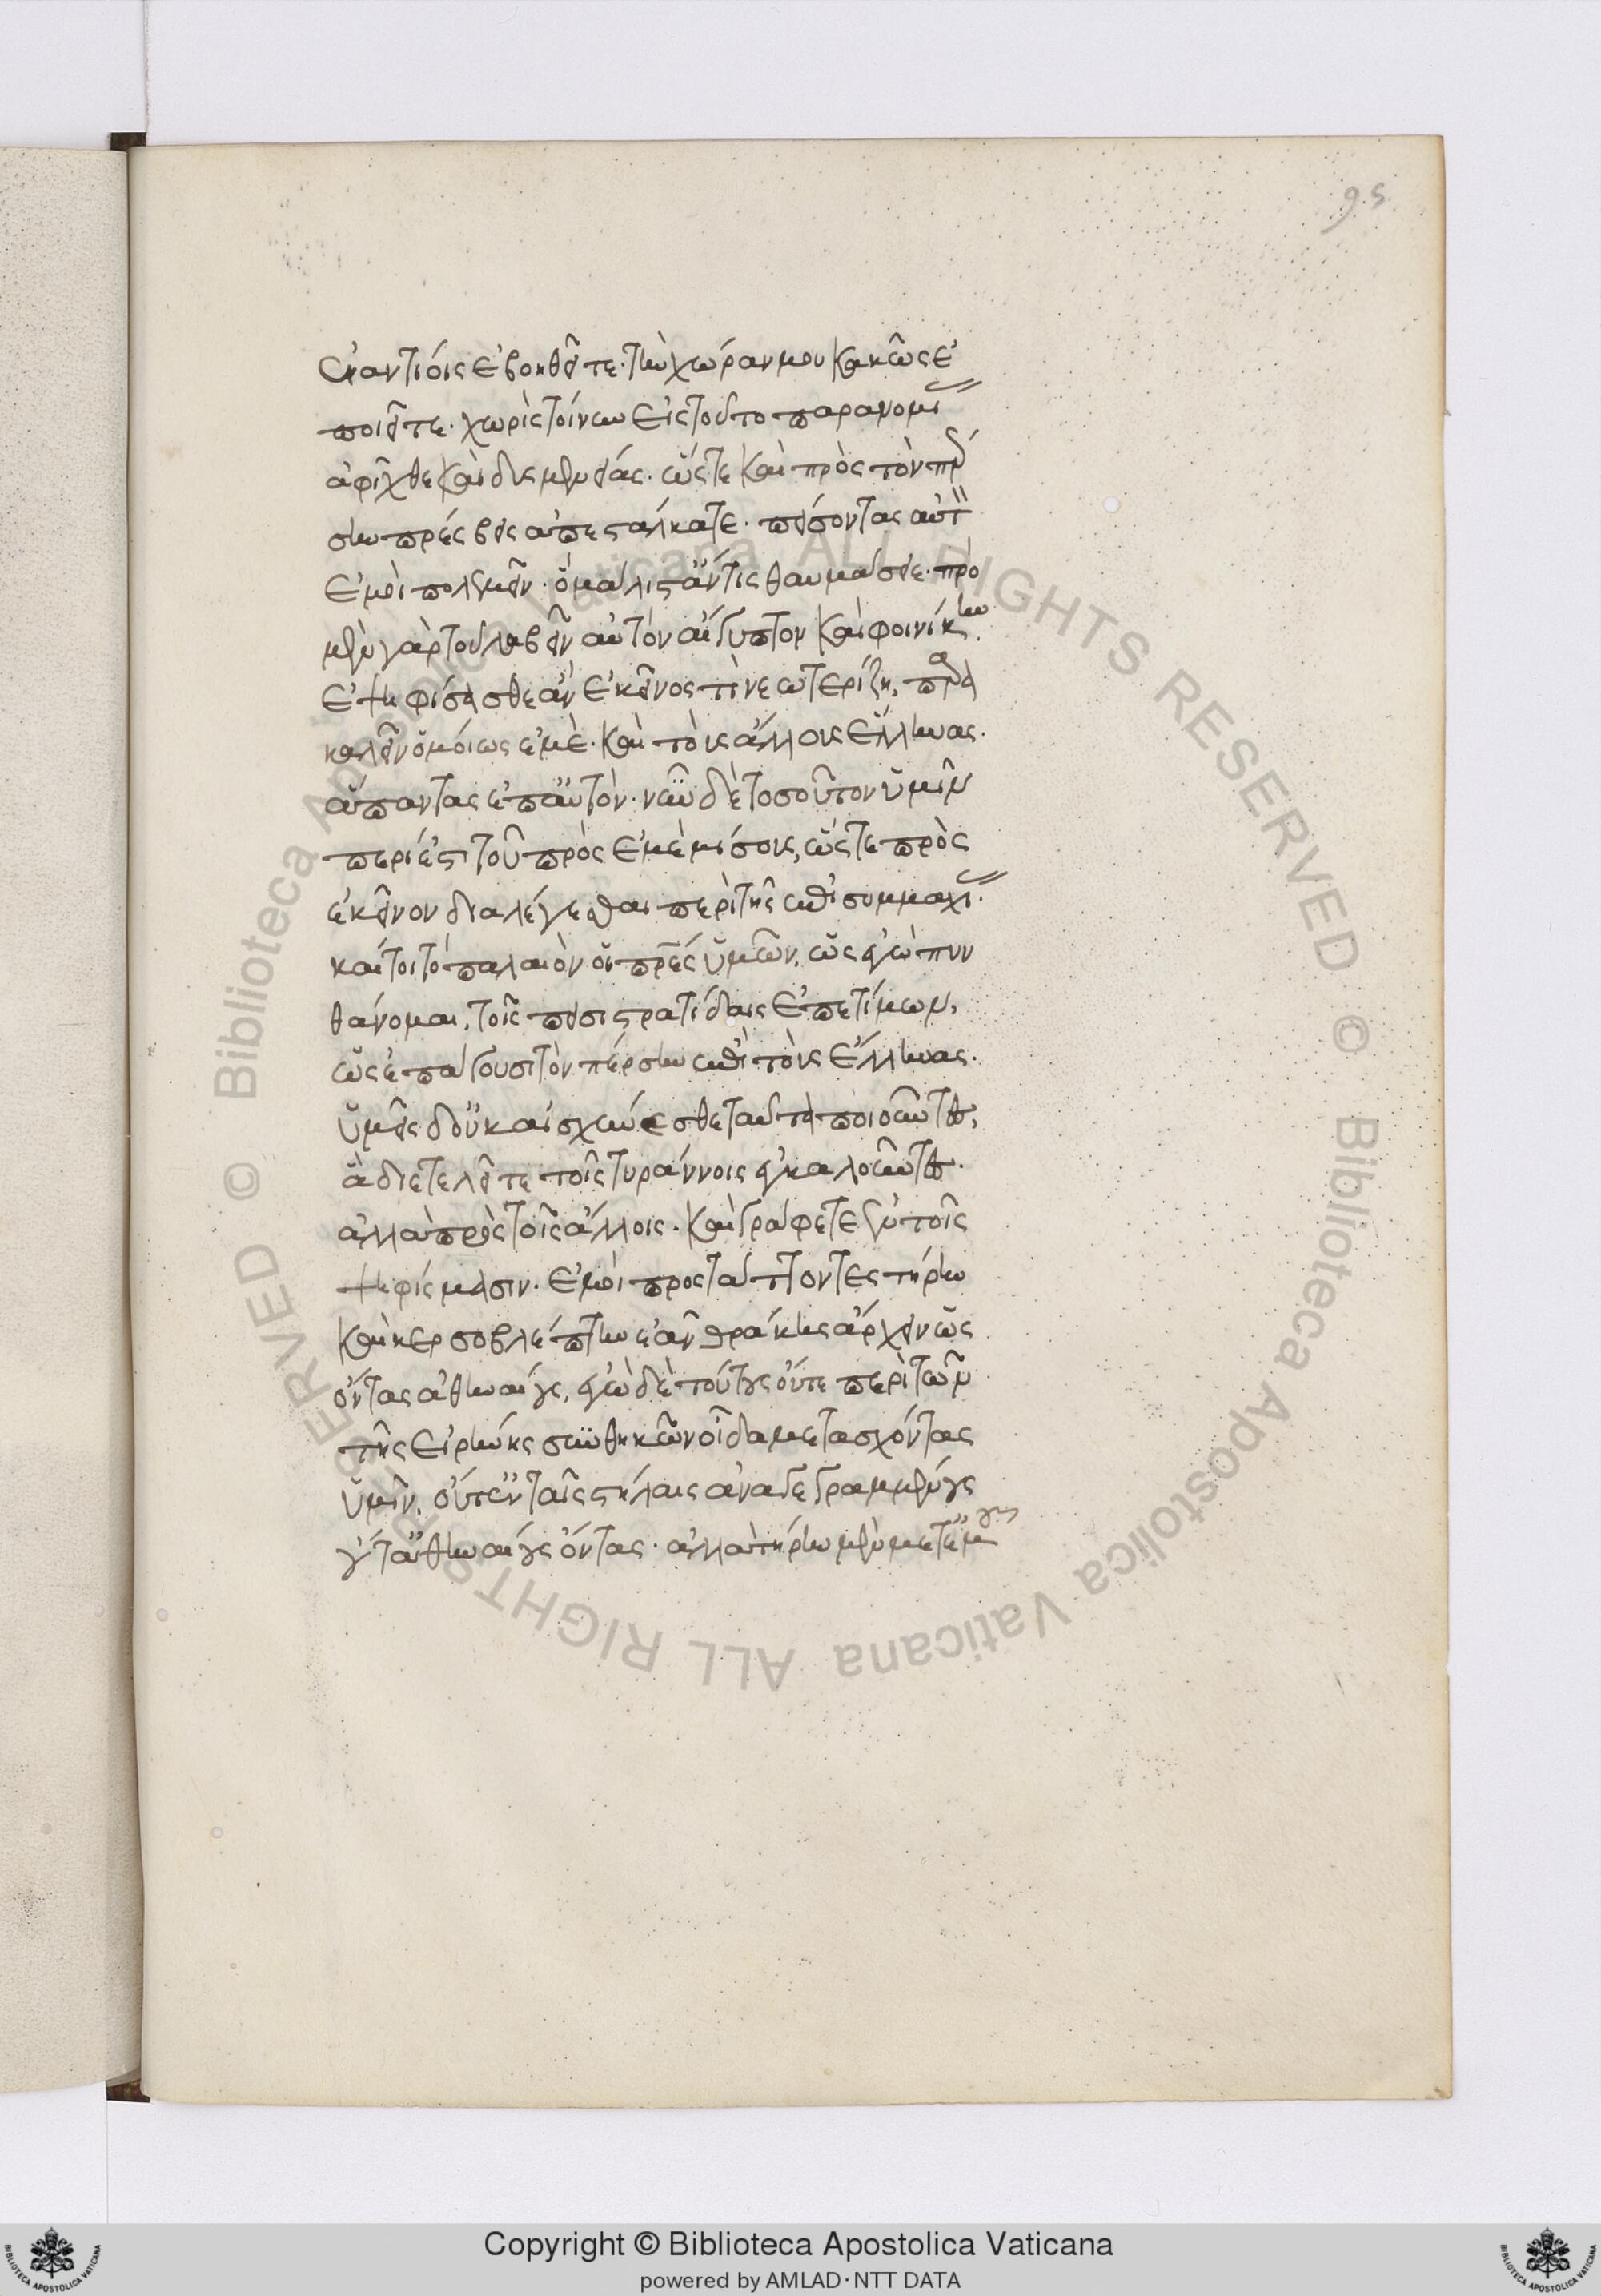 95
ἐναντίοις ἐβοηθεῖτε· τὴν χώραν μου κακῶς ἐ
ποιεῖτε. χωρὶς τοίνυν εἰς τοῦτο παρανομί
ἀφῖχθε καὶ δυσμενείας. ὥστε καὶ πρὸς τὸν πέρ
σην πρέσβεις ἀπεστάλκατε. πείσοντας αὐτ
ἐμοὶ πολεμεῖν. ὃ μάλιστ' ἄν τις θαυμάσειε. πρὸ
μὲν γὰρ τοῦ λαβεῖν αὐτὸν αἴγυπτον καὶ φοινίκην.
ἐψηφίσασθε ἂν ἐκεῖνός τι νεωτερίζη, παρα
καλεῖν ὁμοίως ἐμὲ. καὶ τοὺς ἄλλους ἕλληνας.
ἅπαντας ἐπ' αὐτόν. νῦν δὲ τοσοῦτον ὑμῖν
περίεστι τοῦ πρὸς ἐμὲ μίσους, ὥστε πρὸς
ἐκεῖνον διαλέγεσθαι περὶ τῆς ἐπισυμμαχί.
καίτοι τὸ παλαιὸν οἱ πρες ὑμῶν, ὡς ἐγὼ πυν
θάνομαι, τοῖς πεισιστρατίδαις ἐπετίμων,
ὡς ἐπάγουσι τὸν πέρσην ἐπὶ τοὺς ἕλληνας.
ὑμεῖς δ' οὐκ αἰσχύνεσθε ταῦτα ποιοῦντες,
ἃ διετελεῖτε τοῖς τυράννοις ἐγκαλοῦντες.
ἀλλὰ πρὸς τοῖς ἄλλοις. καὶ γράφετε ἐν τοῖς
ψηφίσμασιν. ἐμοὶ προστάττοντες τήρην
καὶ κερσοβλέπτην ἐᾶν θράκης ἄρχειν ὡς
ὄντας ἀθηναίους, ἐγὼ δὲ τούτους οὔτε περὶ τῶν
τῆς εἰρήνης συνθηκῶν οἶδα μετασχόντας
ὑμῖν, οὔτ' ἐν ταῖς στήλαις ἀναγεγραμμένους
οὔτ' ἀθηναίους ὄντας. ἀλλὰ τήρην μὲν μετ' ἐμοῦ